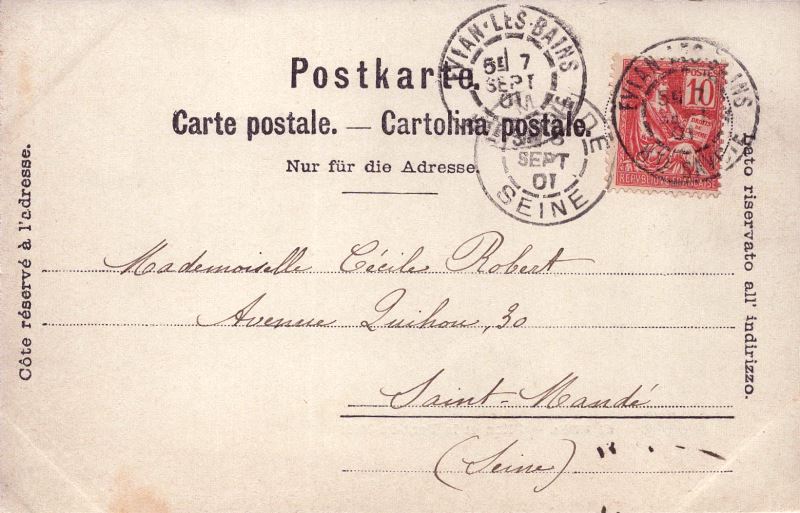 Postkarte.
Carte postale. — Cartolina postale.
Nur für die Adresse.
Côte réservé à l'adresse.
Lato riservato all' indirizzo.
EVIAN-LES-BAINS
7
SEPT
01
SEPT
01
SEINE
EVIAN-LES-BAINS
POSTES
10
Mademoiselle Cécile Robert
Avenue Quihou, 30
Saint-Mandé
(Seine)